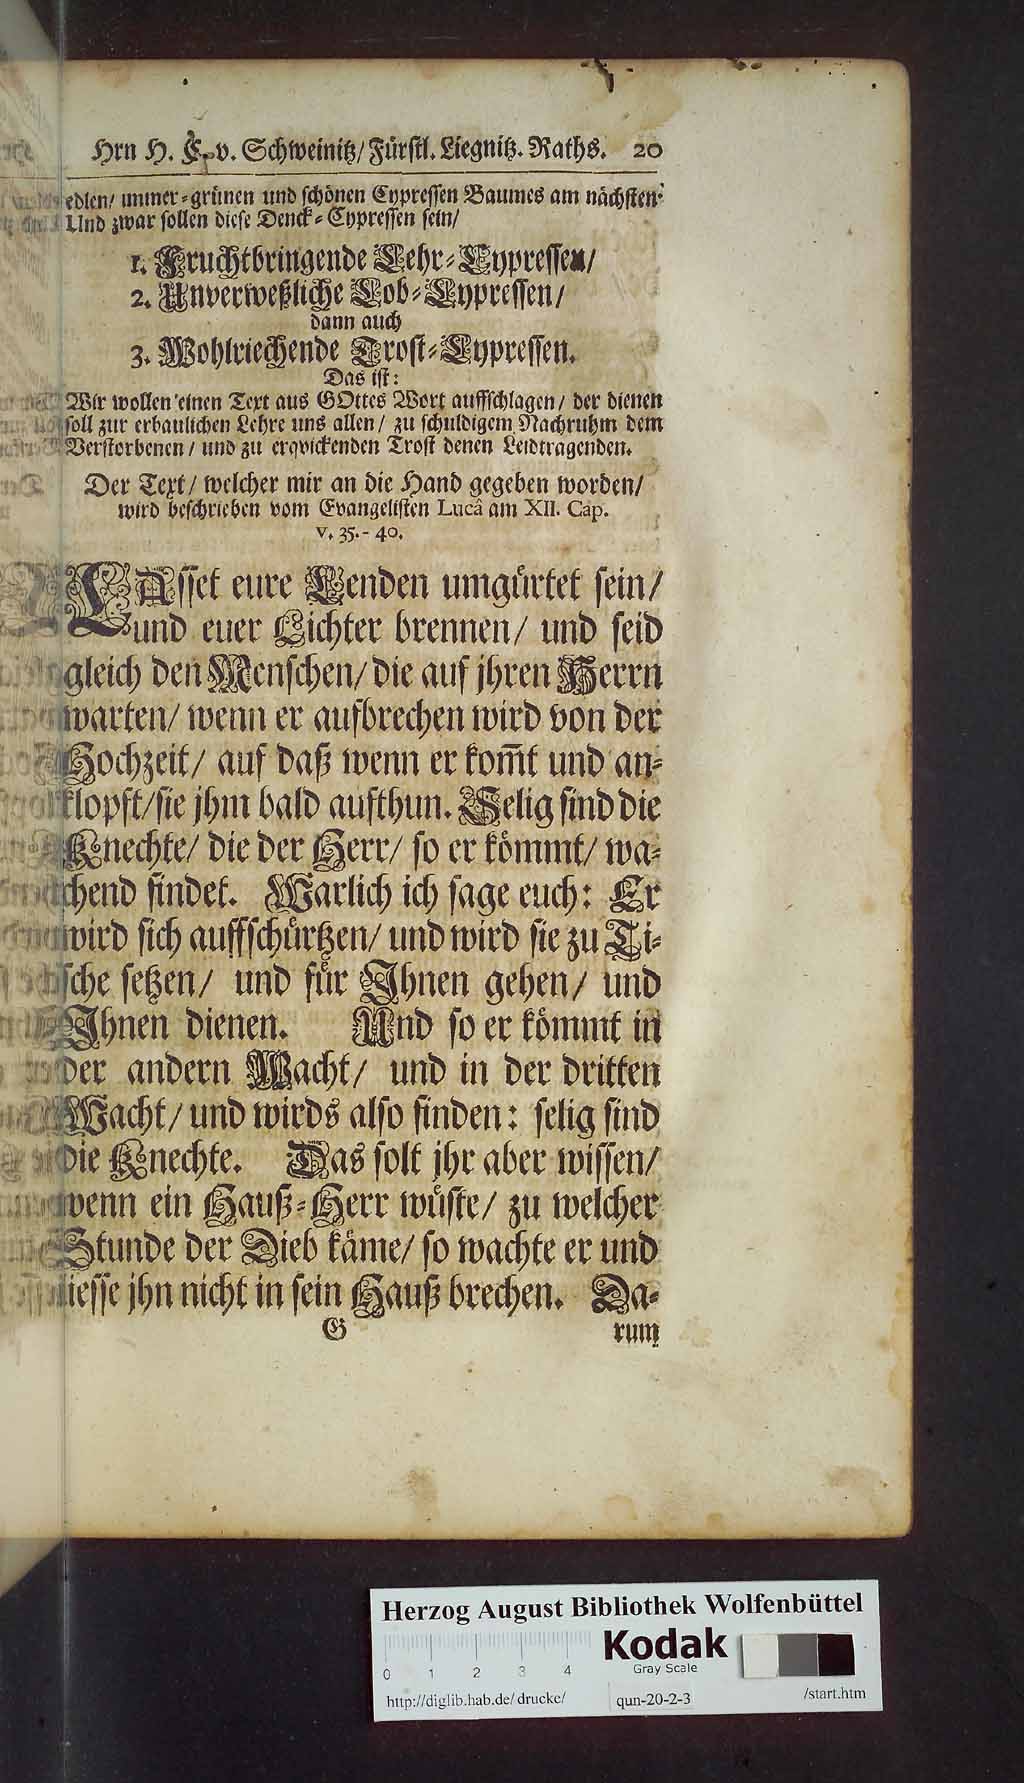 Hrn H. C. v. Schweinitz/ Fürstl. Liegnitz. Raths. 20
edlen/ immer-grünen und schönen Cypressen Baumes am nächsten.
Und zwar sollen diese Denck-Cypressen sein/
1. Fruchtbringende Lehr-Cypressen/
2. Unverweßliche Lob-Cypressen/
dann auch
3. Wohlriechende Trost-Cypressen.
Das ist:
Wir wollen einen Text aus GOttes Wort auffschlagen/ der dienen
soll zur erbaulichen Lehre uns allen/ zu schuldigem Nachruhm dem
Verstorbenen/ und zu erqvickenden Trost denen Leidtragenden.
Der Text/ welcher mir an die Hand gegeben worden/
wird beschrieben vom Evangelisten Lucâ am XII. Cap.
v. 35.- 40.
LAsset eure Lenden umgürtet sein/
und euer Lichter brennen/ und seid
gleich den Menschen/ die auf jhren Herrn
warten/ wenn er aufbrechen wird von der
Hochzeit/ auf daß wenn er kom̅t und an-
klopft/ sie jhm bald aufthun. Selig sind die
Knechte/ die der Herr/ so er kömmt/ wa-
chend findet. Warlich ich sage euch: Er
wird sich auffschürtzen/ und wird sie zu Ti-
sche setzen/ und für Ihnen gehen/ und
Ihnen dienen. Und so er kömmt in
der andern Wacht/ und in der dritten
Wacht/ und wirds also finden: selig sind
die Knechte. Das solt jhr aber wissen/
wenn ein Hauß-Herr wüste/ zu welcher
Stunde der Dieb käme/ so wachte er und
liesse jhn nicht in sein Hauß brechen. Da-
G rum
Herzog August Bibliothek Wolfenbüttel
Kodak
Gray Scale
0 1 2 3 4
http://diglib.hab.de/drucke/ qun-20-2-3 /start.htm